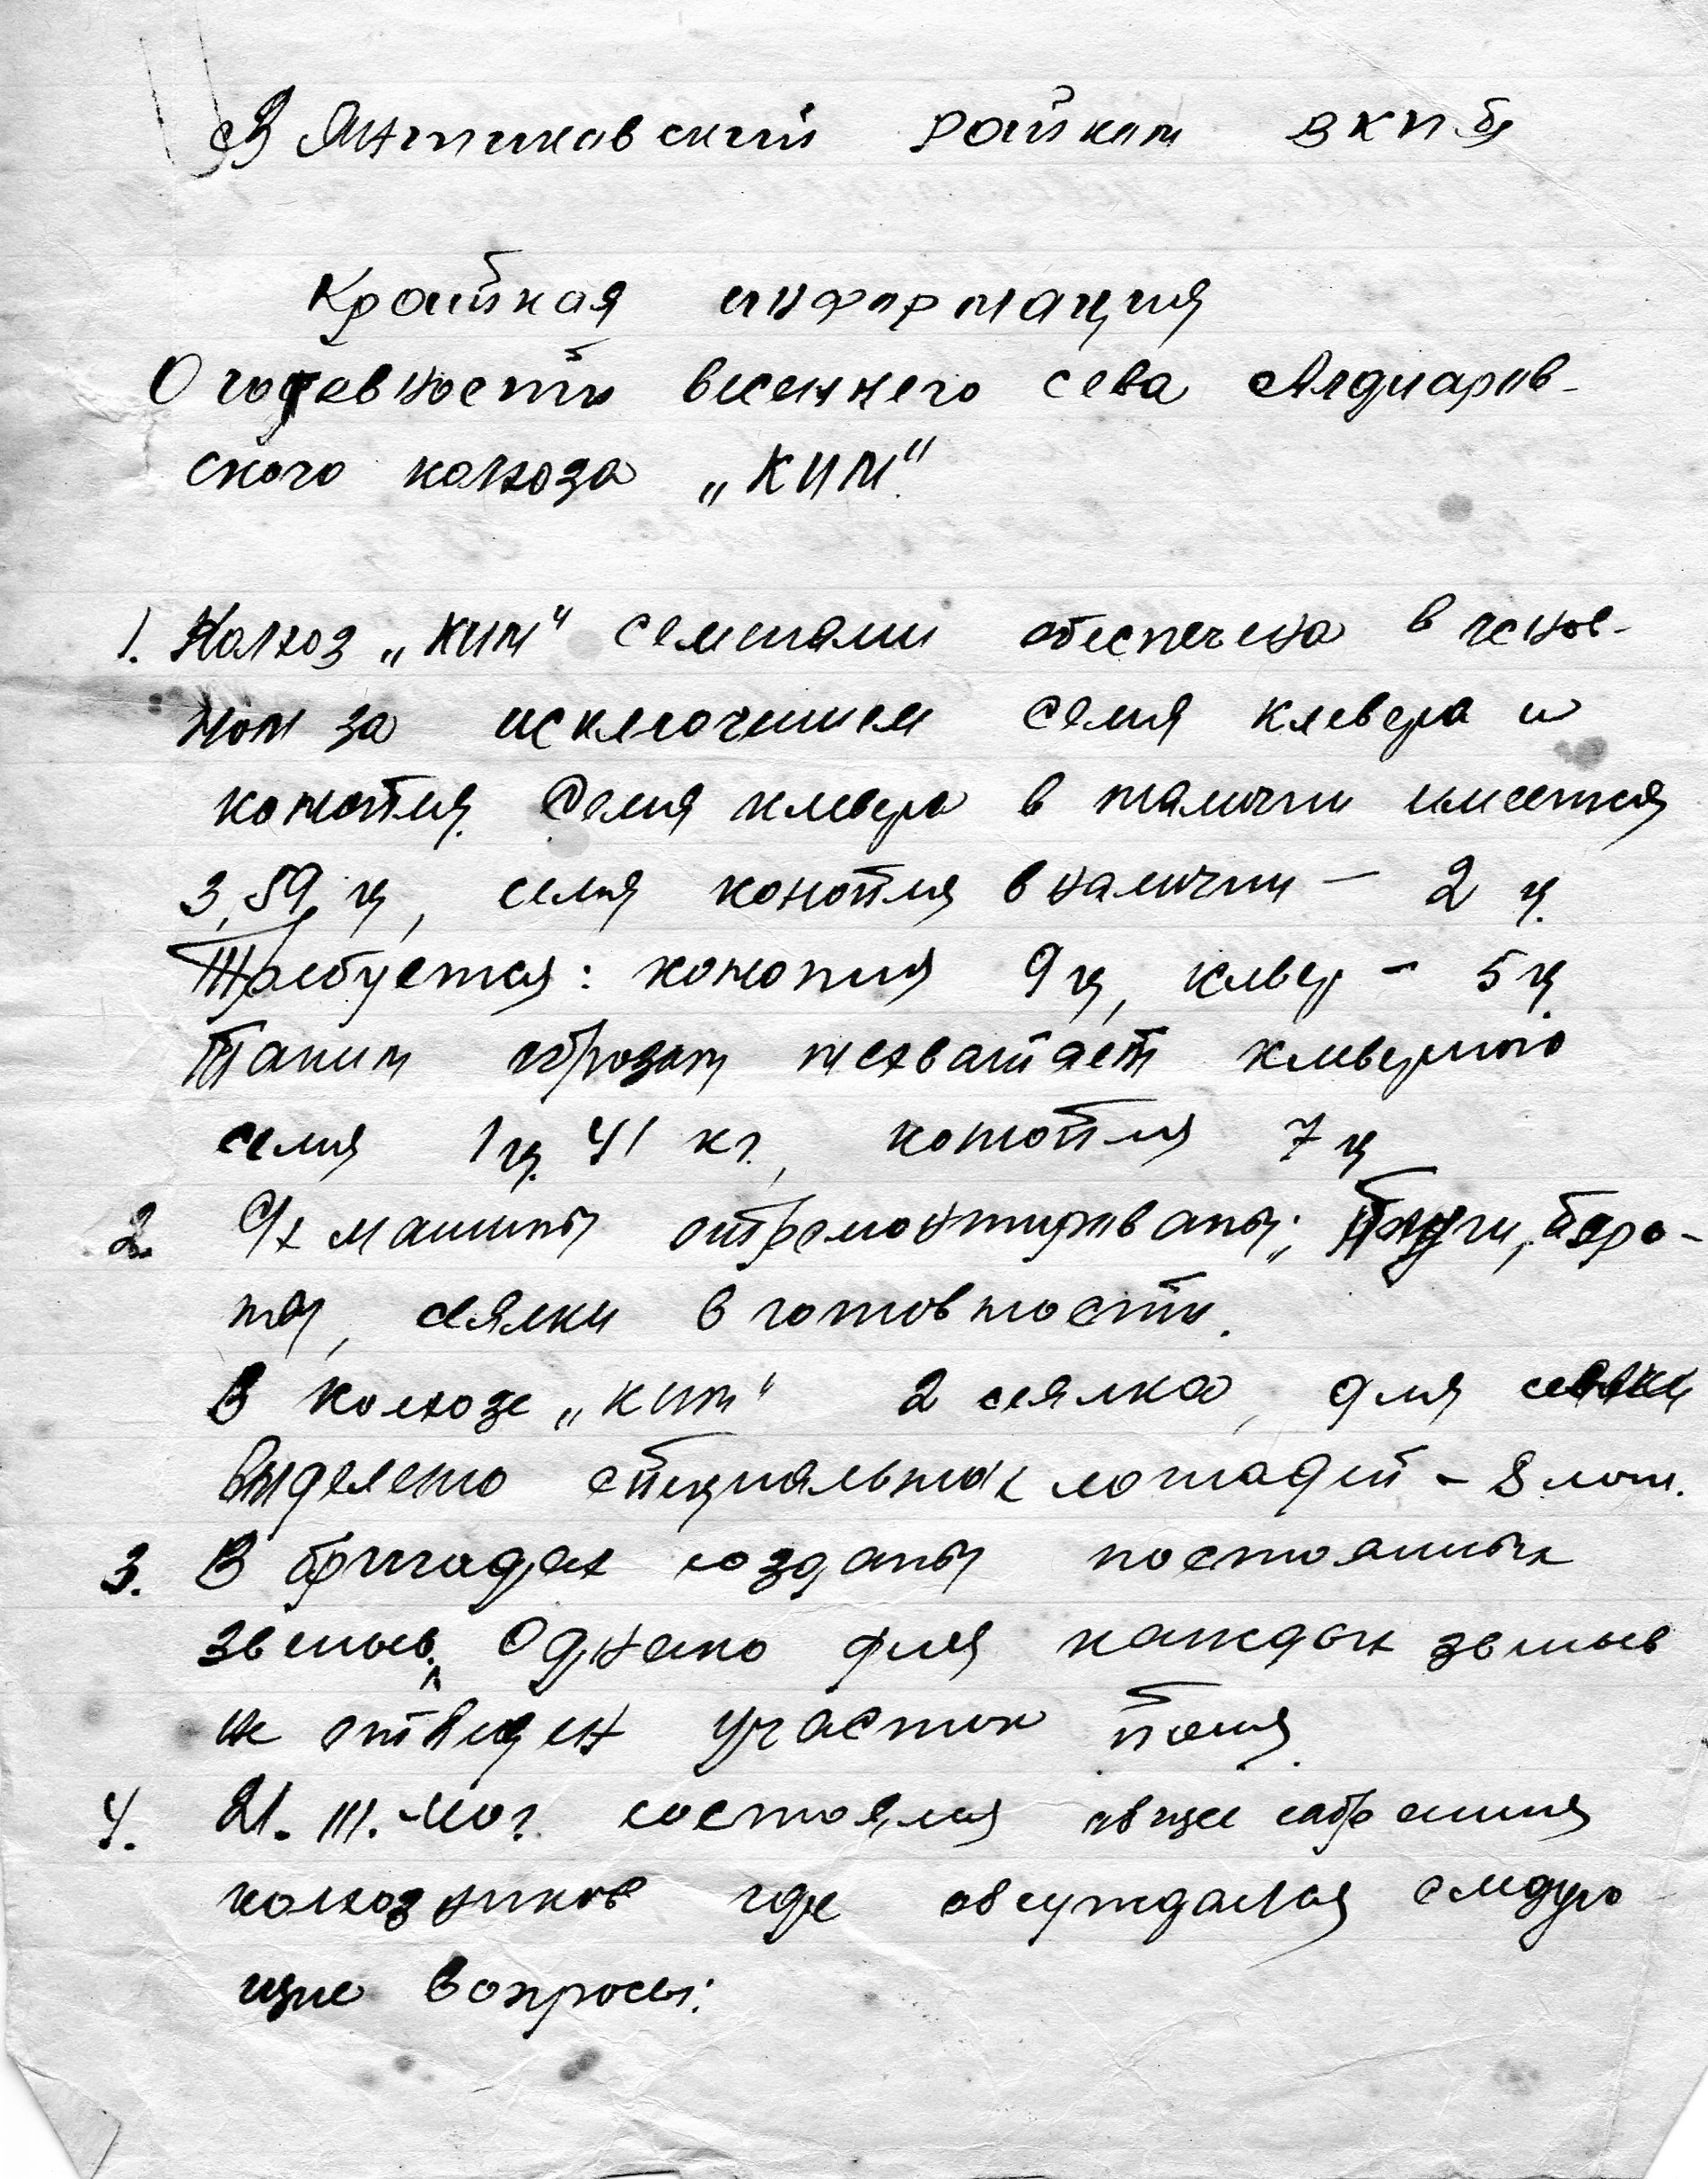 В Янтиковский райком ВКП(б)
Краткая информация
О готовности весеннего сева Алдиаров-
ского колхоза „КИМ".
1. Колхоз „КИМ" семенами обеспечена в основ-
ном за исключением семя клевера и
конопля. Семя клевера в наличии имеется
3,59 ц, семя конопля в наличии – 2 ц.
Требуется: конопля 9 ц, клевер – 5 ц.
Таким образом нехватает клеверного
семя 1 ц. 41 кг., конопля 7 ц
2. С/х машины отремонтированы; Плуги, боро-
ны, сеялки в готовности.
В колхозе „КИМ" 2 сеялка, для
выделено специальных лошадей – 8 лош.
3. В бригадах созданы постоянных
звеньев. Однако для каждых звеньев
не отведен участок поля.
4. 21. III. 40 г. состоялся общее собрания
колхозников где обсуждался следую-
щие вопросы: